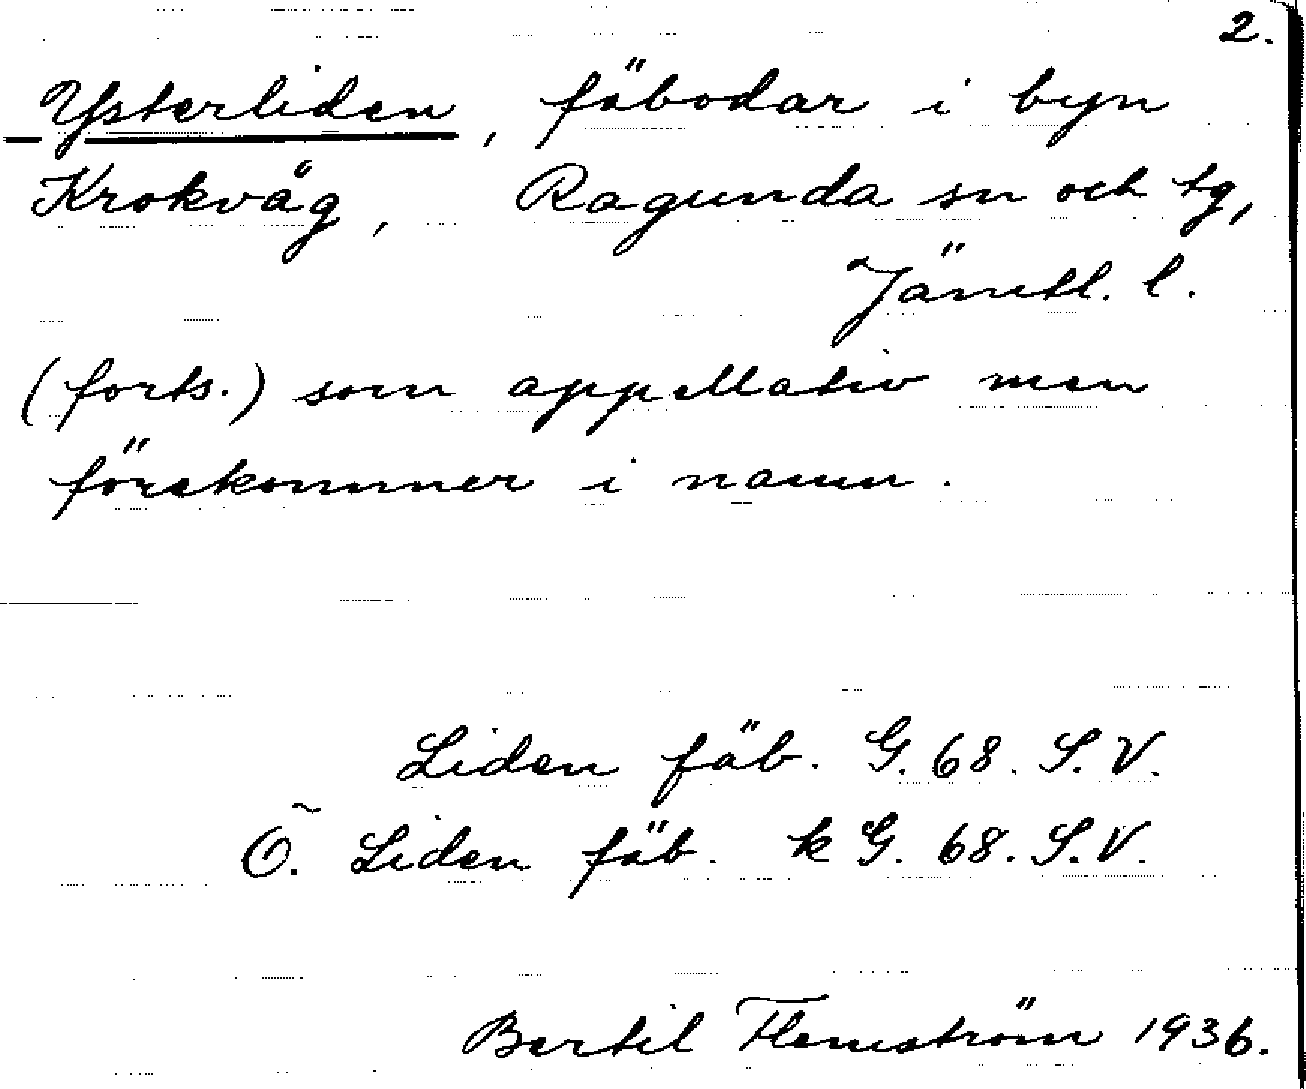 2.
Ysterliden, fäbodar i byn
Krokvåg, Ragunda sn och tg,
Jämtl. l.
(forts.) som appellativ men
förekommer i namn.
Liden fäb. G. 68. S.V.
Ö. Liden fäb. k G. 68. S.V.
Bertil Flemström 1936.